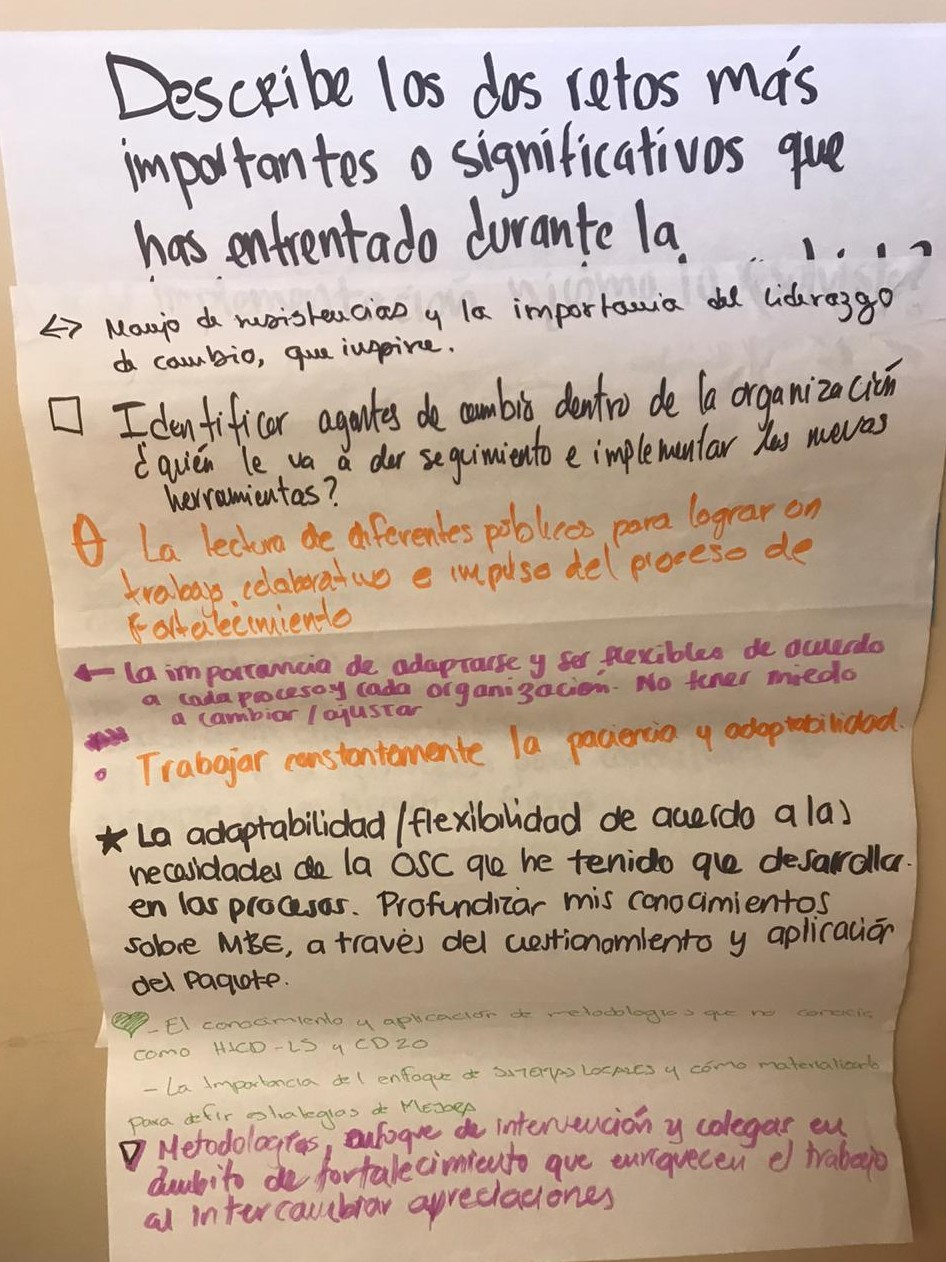 Describe los dos retos más
importantes o significativos que
has enfrentado durante la
<-> Manejo de resistencias y la importania del liderazgo
de cambio, que inspire.
□ Identificar agentes de cambio dentro de la organización
¿quién le va a dar seguimiento e implementar las nuevas
herramientas?
La lectura de diferentes públicos para lograr un
trabajo colaborativo e impulso del proceso de
fortalecimiento
← La importancia de adaptarse y ser flexibles de acuerdo
a cada proceso y cada organización. No tener miedo
a cambiar/ajustar
• Trabajar constantemente la paciencia y adaptabilidad.
★ La adaptabilidad/flexibilidad de acuerdo a las
necesidades de la OSC que he tenido que desarrollar
en los procesos. Profundizar mis conocimientos
sobre MBE, a través del cuestionamiento y aplicación
del Paquete.
♥ - El conocimiento y aplicación de metodologías que no conocía
como HICD-LS y CD20
- La Importancia del enfoque de SISTEMAS LOCALES y cómo materializarlo
para defir estrategias de MEJORA
▽ Metodologías, enfoque de intervención y colegar en
ámbito de fortalecimiento que enriquecen el trabajo
al intercambiar apreciaciones